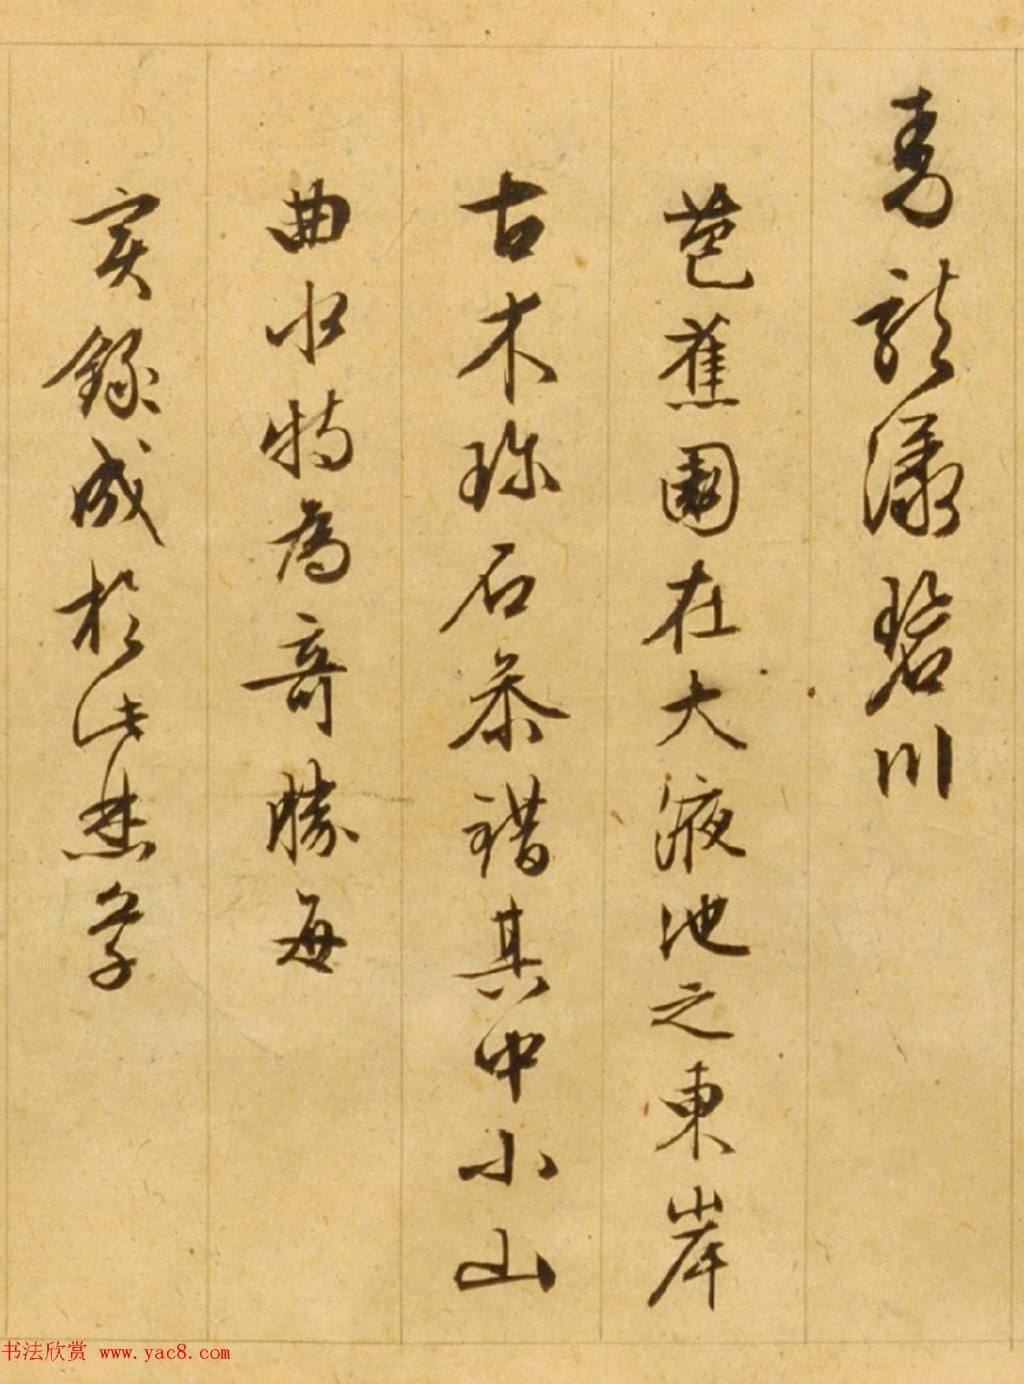 青龍漾碧川
芭蕉園在大液池之東岸
古木珍石參錯其中小山
曲水特為奇勝每
實錄成於此焚草
书法欣赏 www.yac8.com